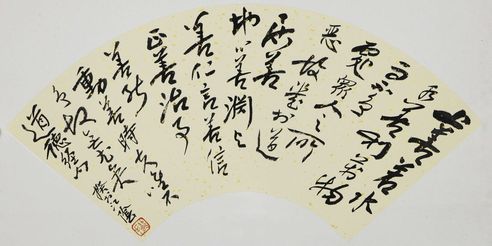 上善若水
水善利萬物
而不爭
處眾人之所
惡故幾於道
居善
地心善淵與
善仁言善信
正善治事
善能
動善時夫唯不
爭故無尤
道德經